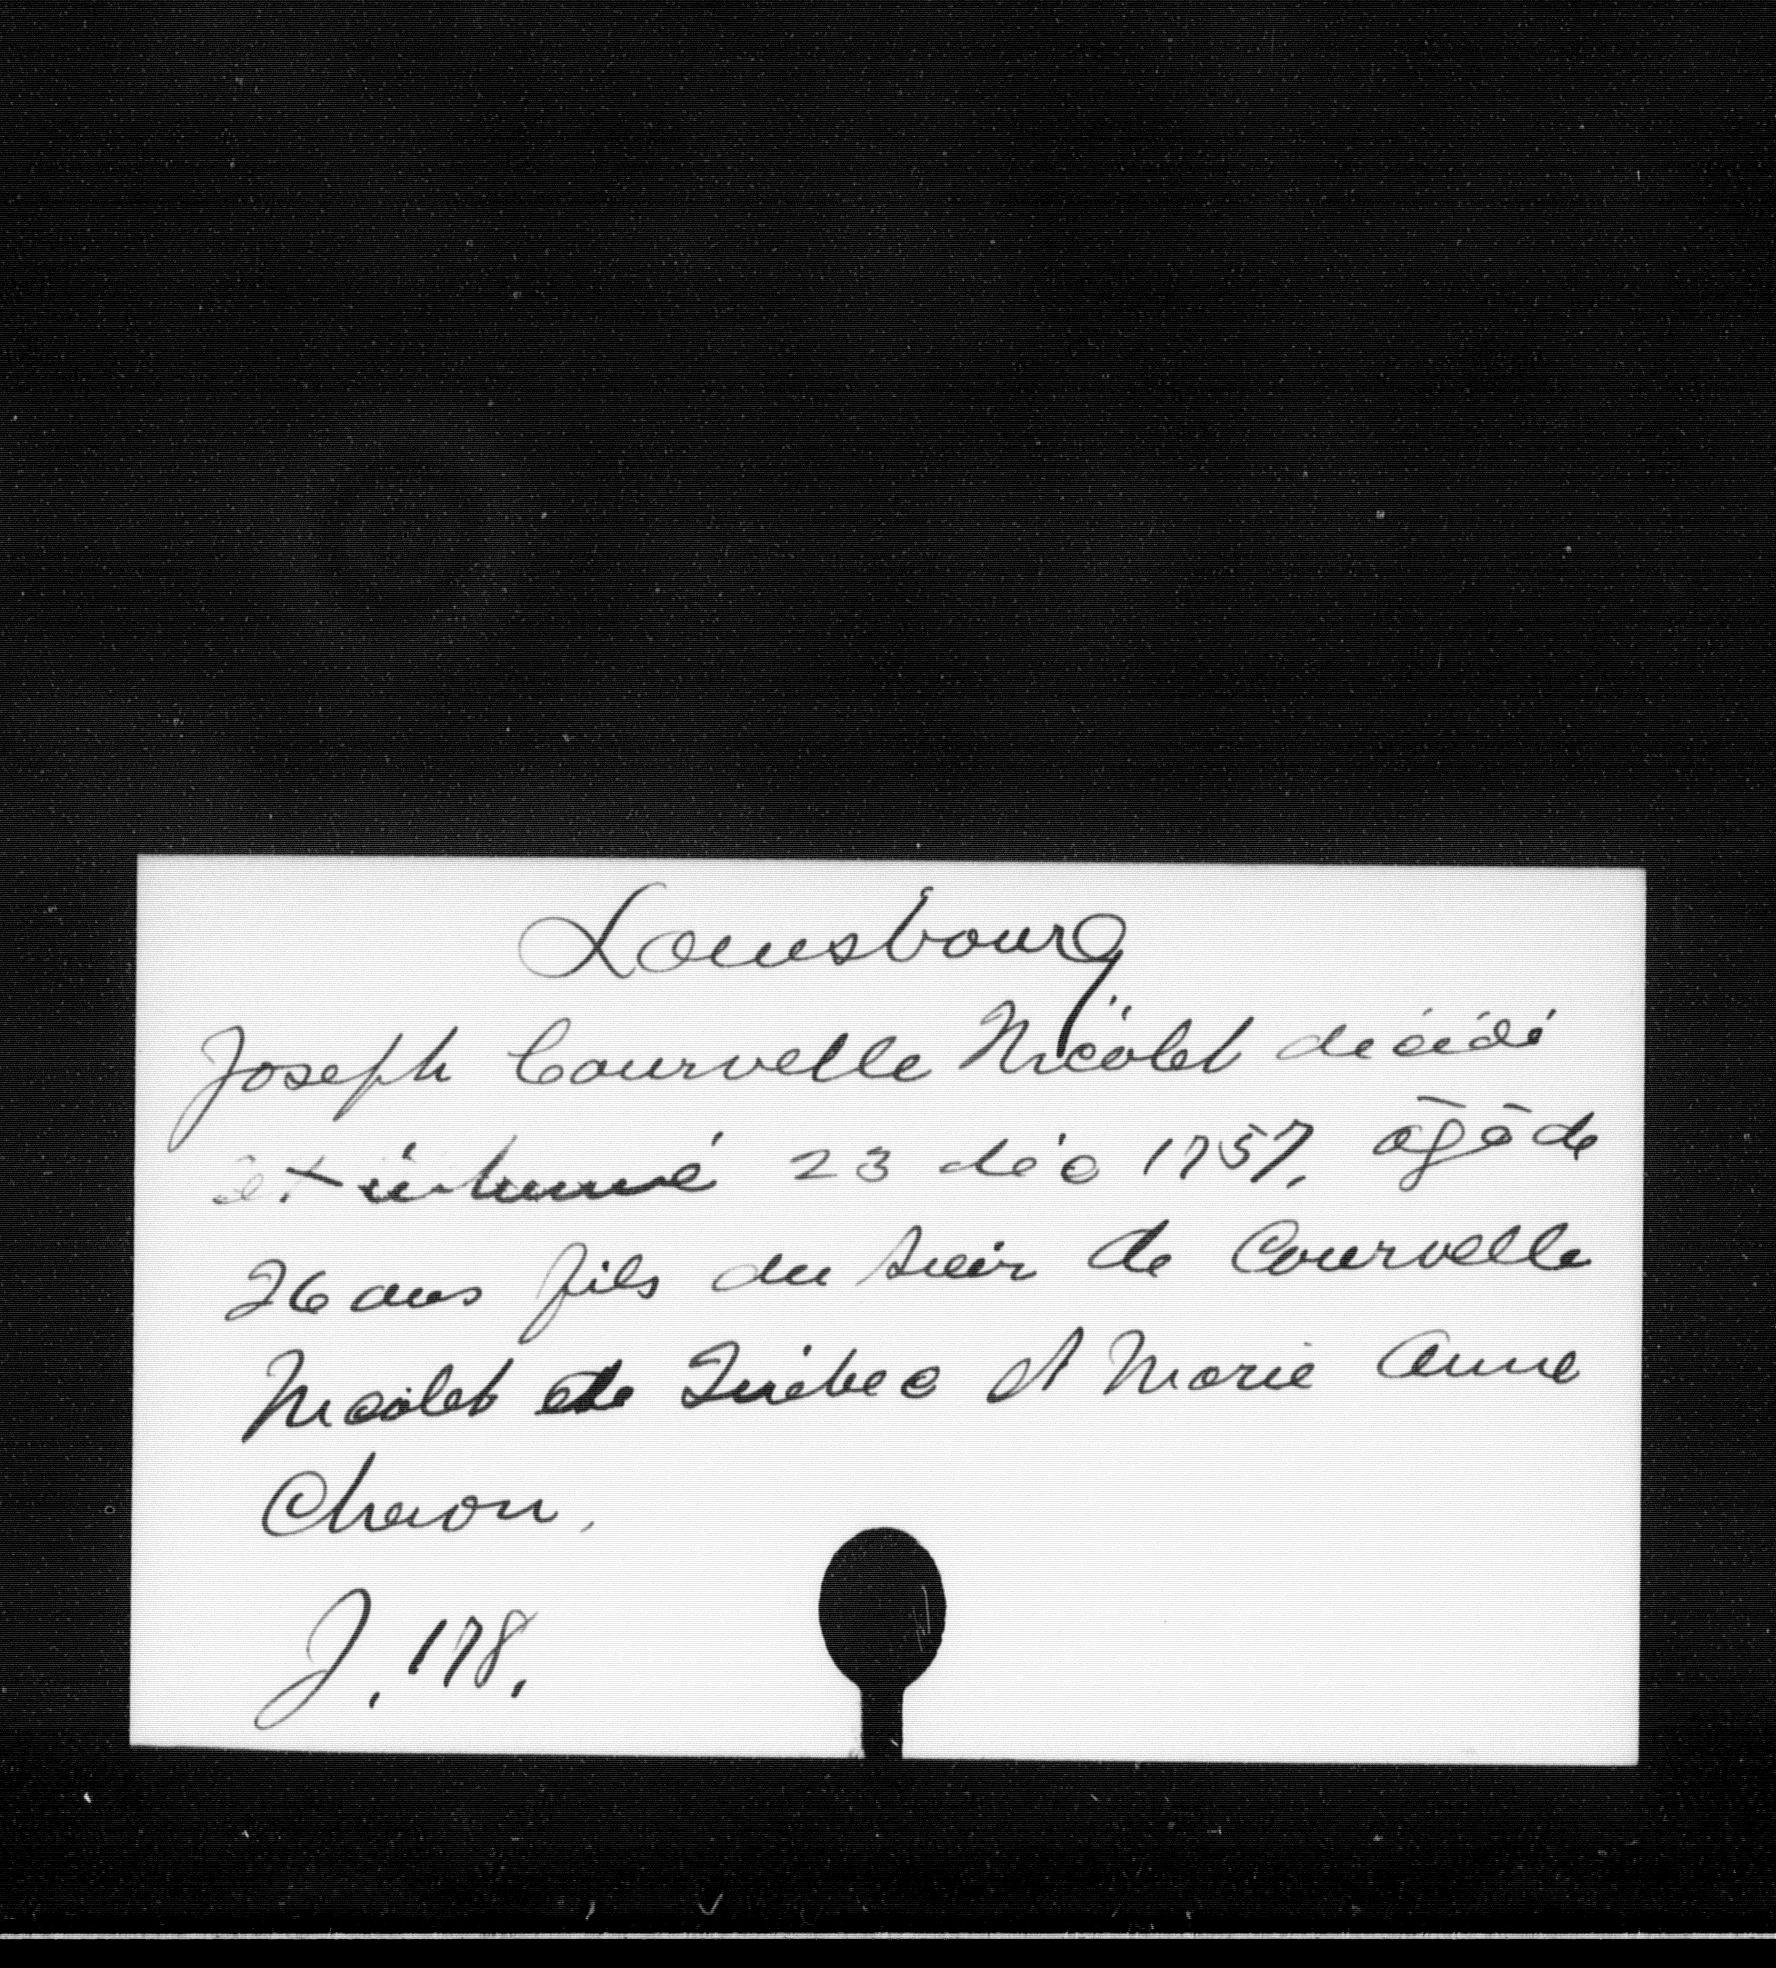 Louisbourg
Joseph Courvelle Nicolet décédé
et inhumé 23 déc 1757, âgé de
26 ans fils du sieur de Courvelle
Nicolet de Québec et Marie Anne
Cheron,
J. 178.